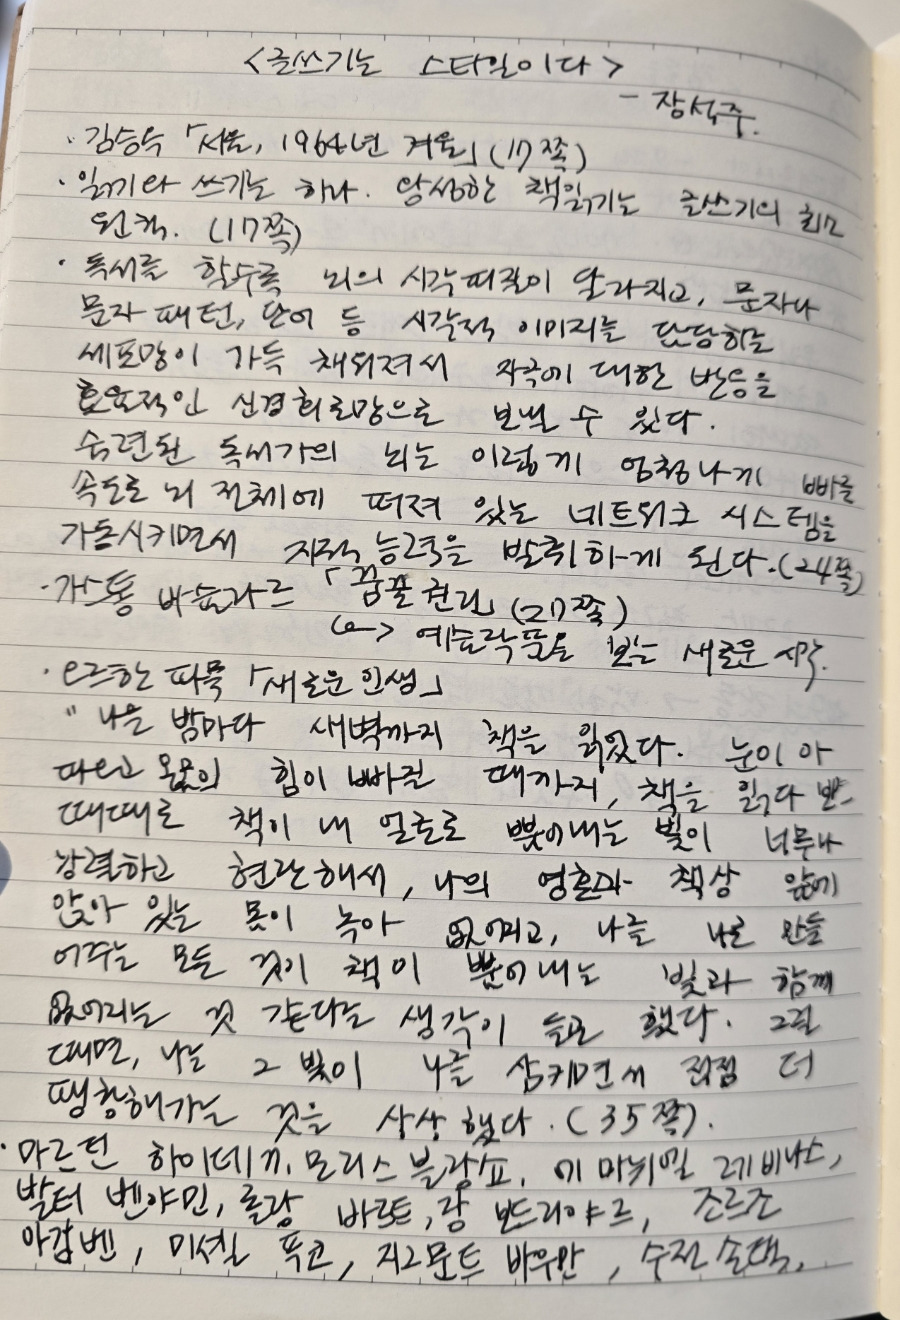 <글쓰기는 스타일이다>
- 장석주.
· 김승옥 「서울, 1964년 겨울」(17쪽)
· 읽기와 쓰기는 하나. 왕성한 책읽기는 글쓰기의 최고
원칙. (17쪽)
· 독서를 할수록 뇌의 시각피질이 달라지고, 문자나
문자 패턴, 단어 등 시각적 이미지를 담당하는
세포망이 가득 채워져서 자극에 대한 반응을
효율적인 신경회로망으로 보낼 수 있다.
숙련된 독서가의 뇌는 이렇게 엄청나게 빠른
속도로 뇌 전체에 퍼져 있는 네트워크 시스템을
가동시키면서 지적 능력을 발휘하게 된다.(24쪽)
· 가스통 바슐라르 「꿈꿀 권리」(27쪽)
예술작품을 보는 새로운 시각.
· 오르한 파묵 「새로운 인생」
" 나는 밤마다 새벽까지 책을 읽었다. 눈이 아
파오고 온몸의 힘이 빠질 때까지, 책을 읽다 보면
때때로 책이 내 얼굴로 뿜어내는 빛이 너무나
강렬하고 현란해서, 나의 영혼과 책상 앞에
앉아 있는 몸이 녹아 없어지고, 나를 나로 만들
어주는 모든 것이 책이 뿜어내는 빛과 함께
없어지는 것 같다는 생각이 들곤 했다. 그럴
때면, 나는 그 빛이 나를 삼키면서 점점 더
팽창해가는 것을 상상했다.(35쪽).
· 마르틴 하이데거, 모리스 블랑쇼, 에마뉘엘 레비나스,
발터 벤야민, 롤랑 바르트, 장 보드리야르, 조르조
아감벤, 미셸 푸코, 지그문트 바우만, 수전 손택,